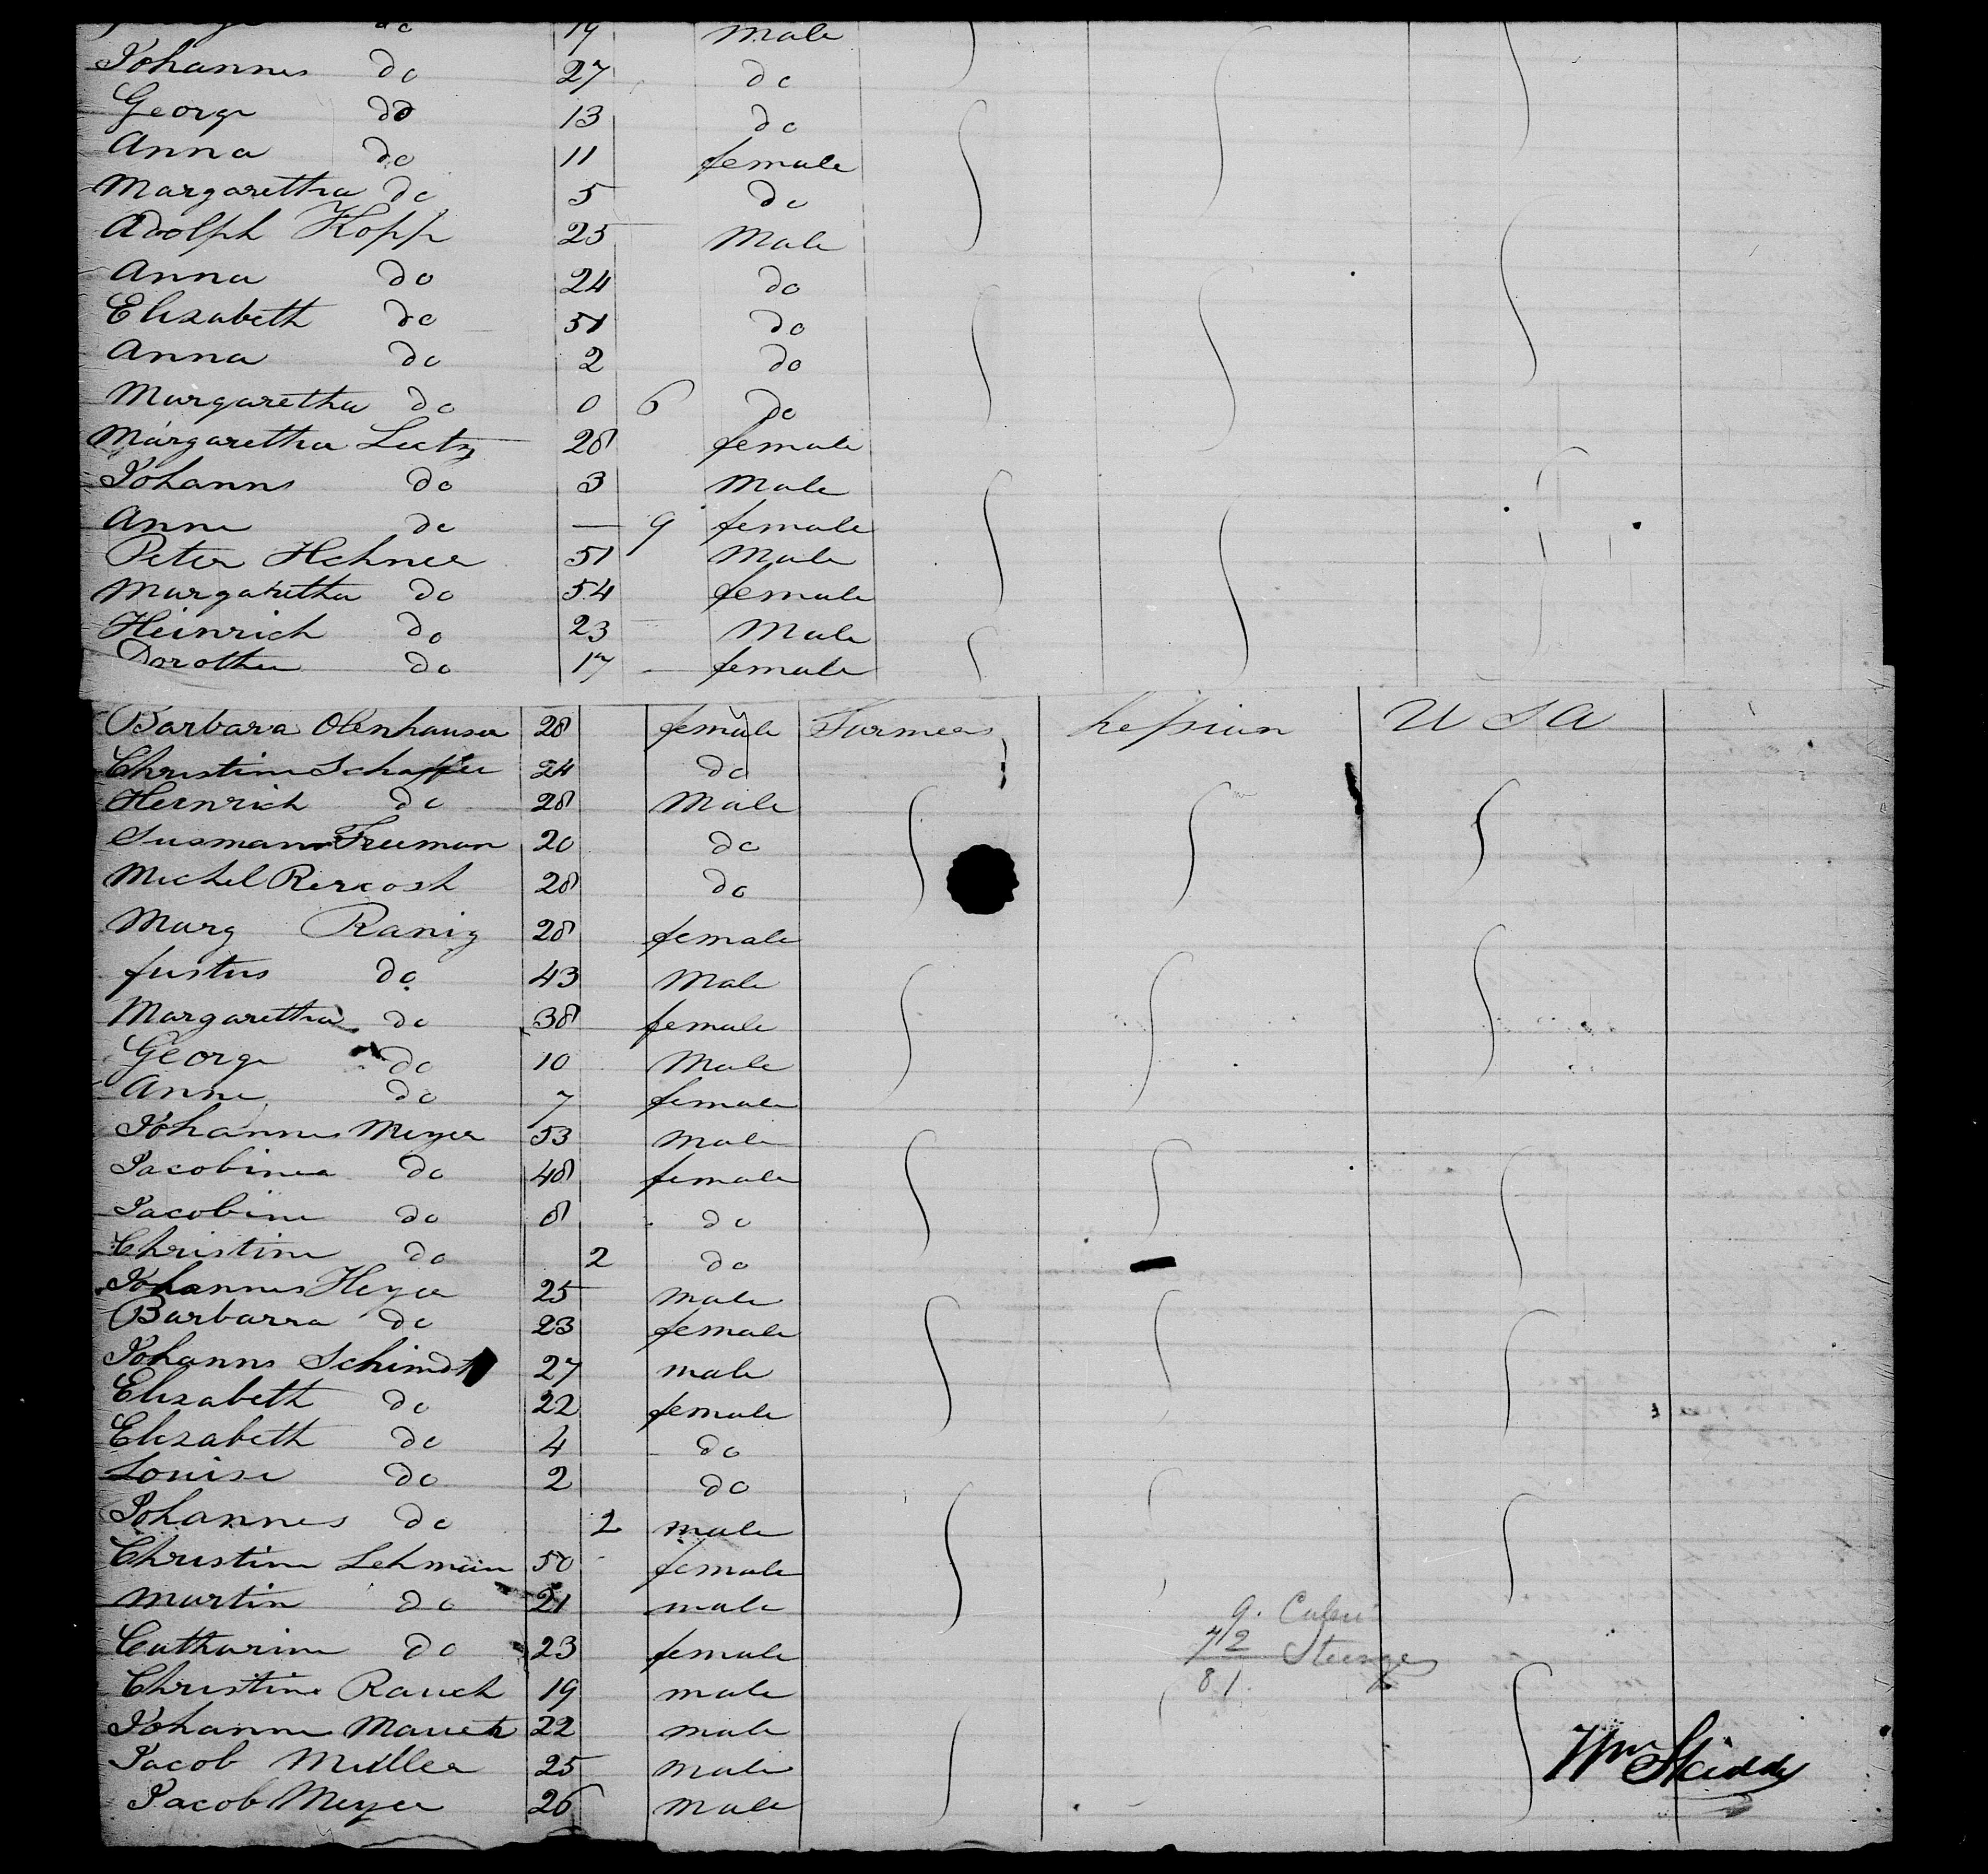 do 19 male
Johannes do 27 do
George do 13 do
Anna do 11 female
Margaretha do 5 do
Adolph Kopp 25 Male
Anna do 24 do
Elisabeth do 51 do
Anna do 2 do
Margaretha do 0 6 do
Margaretha Lutz 28 female
Johanns do 3 Male
Anna do — 9 female
Peter Hehner 51 Male
Margaretha do 54 female
Heinrich do 23 Male
Dorothea do 17 female
Barbara Olenhauser 28 female Farmers hessian U S A
Christine Schaffer 24 do
Heinrich do 28 Male
Susmann Freeman 20 do
Michel 28 do
Marg Ranig 28 female
Justus do 43 Male
Margaretha do 38 female
George do 10 Male
Anne do 7 female
Johannes Meyer 53 Male
Jacobinea do 48 female
Jacobine do 8 do
Christine do 2 do
Johannes Heyer 25 male
Barbarra do 23 female
Johanns Schimdt 27 male
Elisabeth do 22 female
Elisabeth do 4 do
Louise do 2 do
Johannes do 2 male
Christine Lehman 50 female
Martin do 21 male
Catharine do 23 female
Christine Rauch 19 male
Johanne 22 male
Jacob Muller 25 male
Jacob Meyer 26 male
9. Cabin
72 Steerage
81.
Wm Skiddy